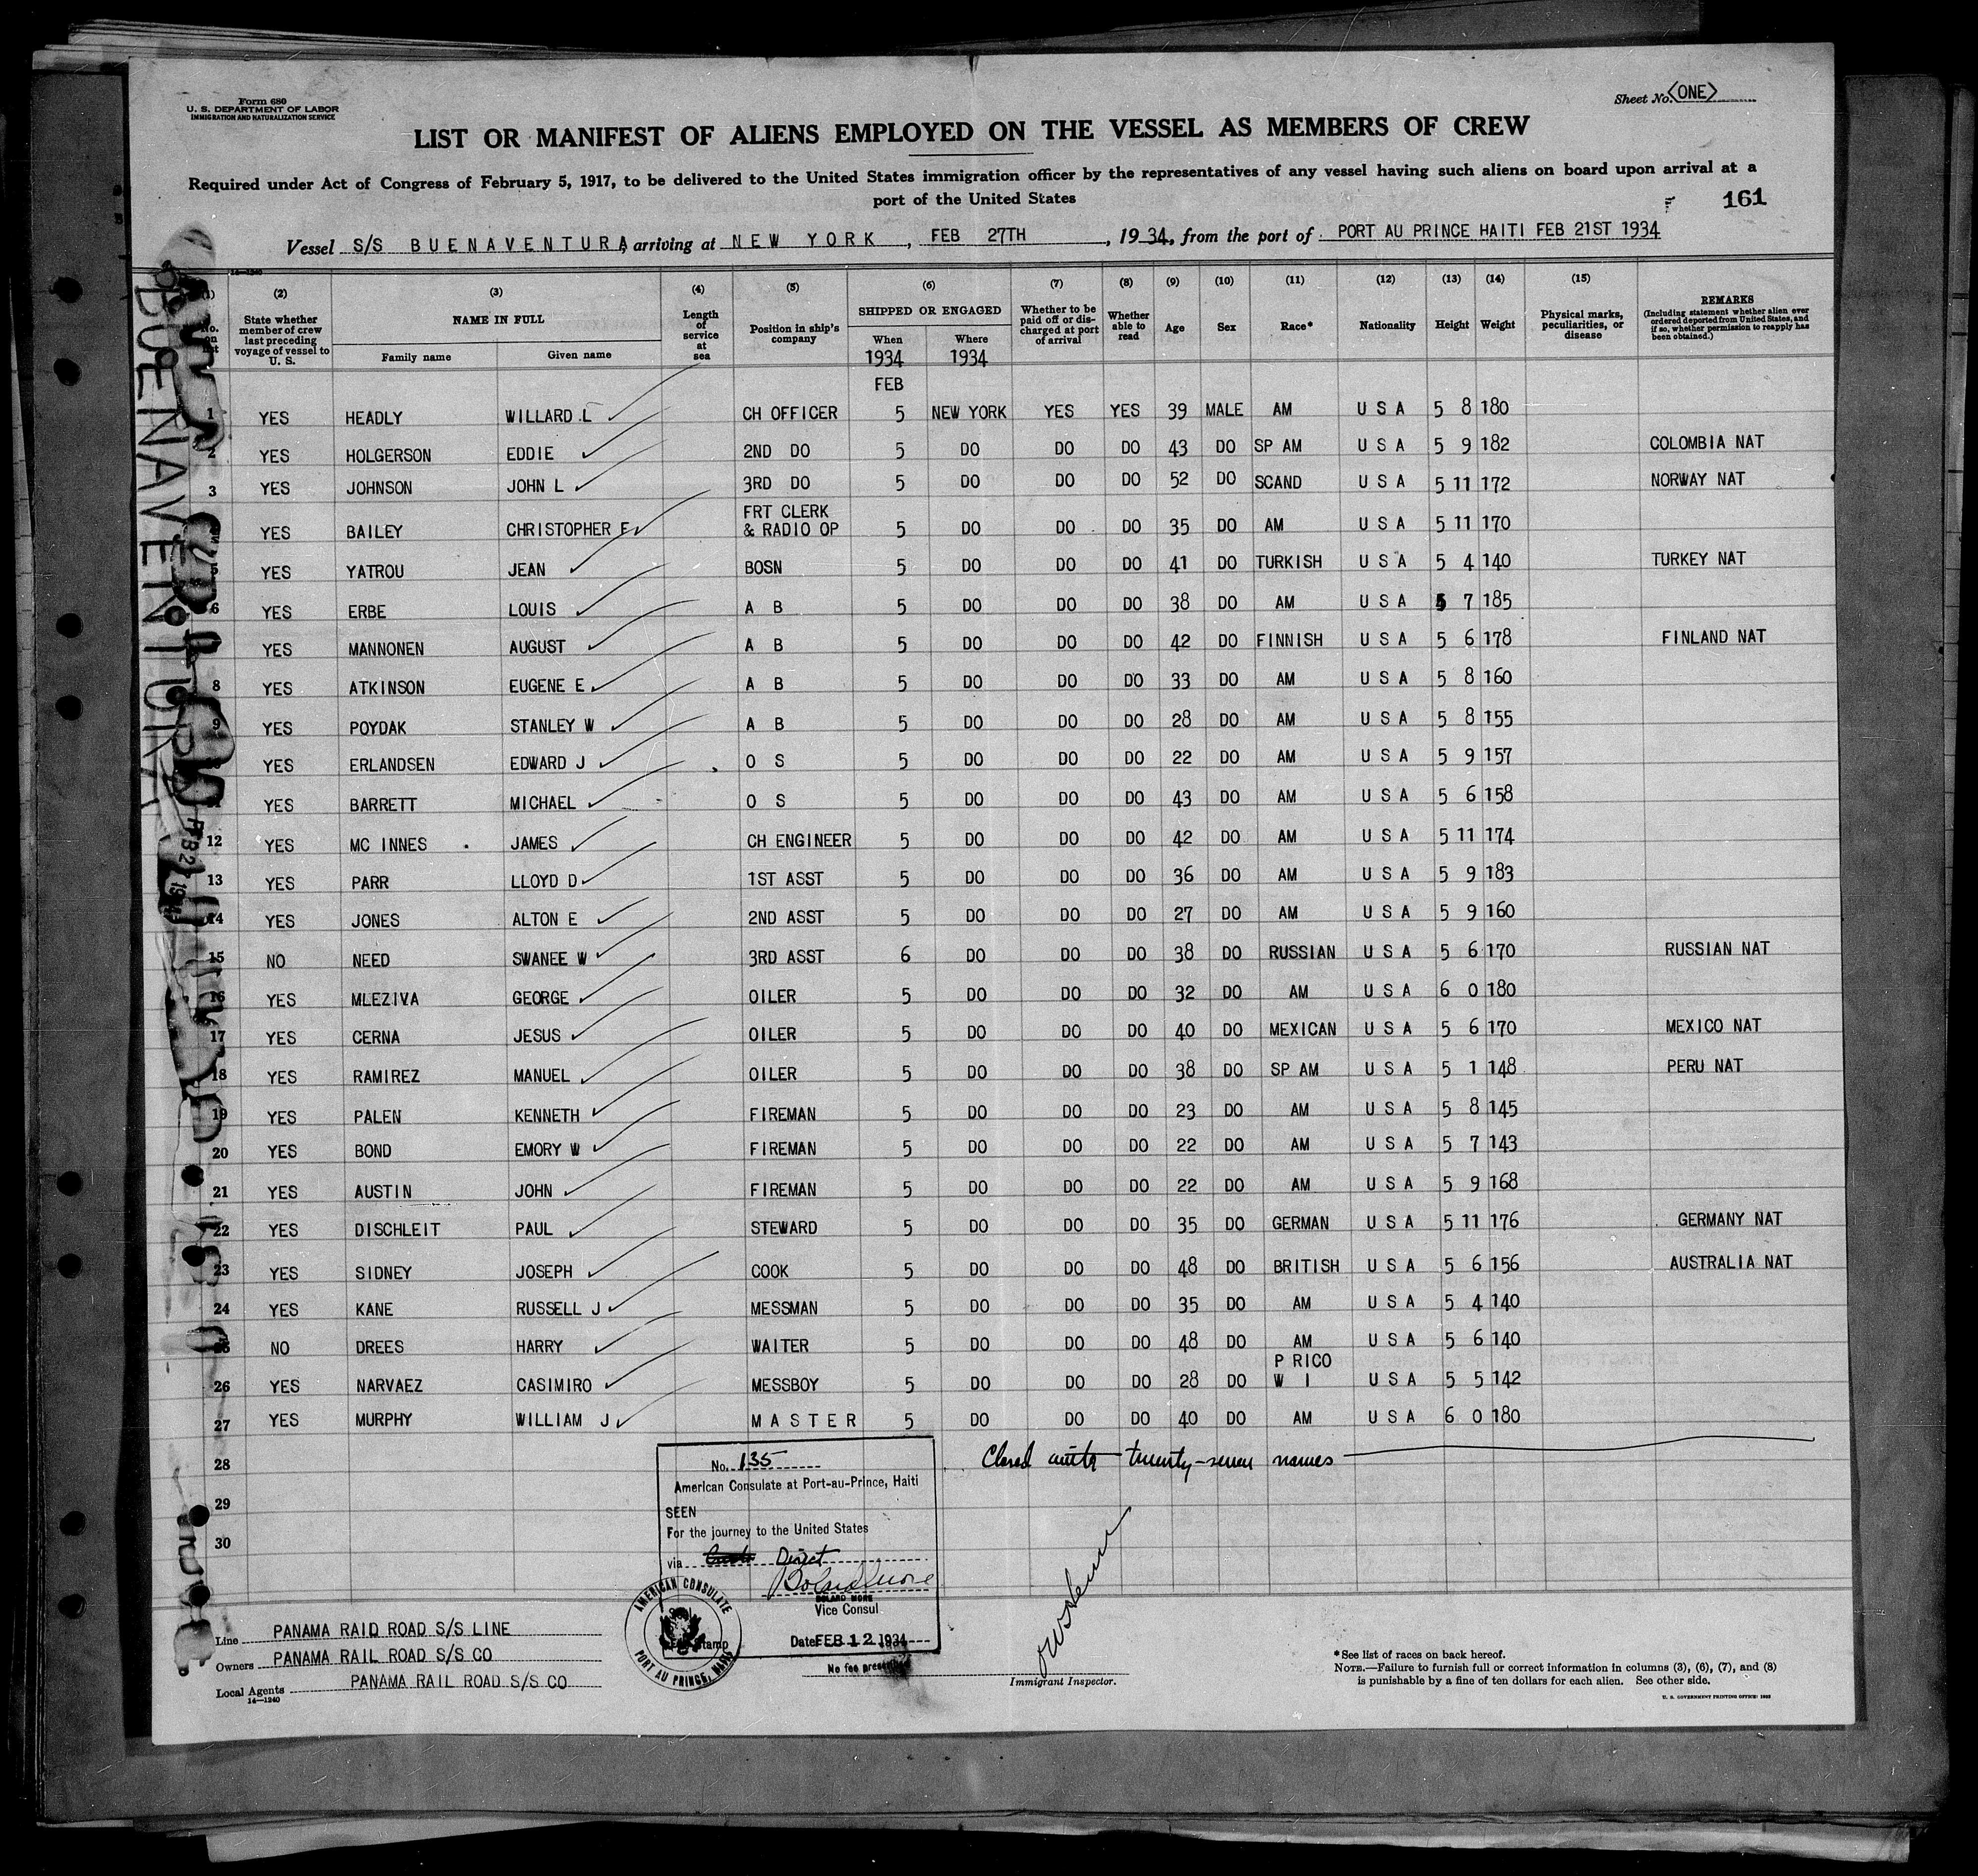 Form 680
U. S. DEPARTMENT OF LABOR
IMMIGRATION AND NATURALIZATION SERVICE
Sheet No. (ONE)
LIST OR MANIFEST OF ALIENS EMPLOYED ON THE VESSEL AS MEMBERS OF CREW
Required under Act of Congress of February 5, 1917, to be delivered to the United States immigration officer by the representatives of any vessel having such aliens on board upon arrival at a
port of the United States
161
Vessel S/S BUENAVENTURA, arriving at NEW YORK, FEB 27TH, 1934, from the port of PORT AU PRINCE HAITI FEB 21ST 1934
14—1240
(1) (2) (3) (4) (5) (6) (7) (8) (9) (10) (11) (12) (13) (14) (15)
No. on list State whether member of crew last preceding voyage of vessel to U. S. NAME IN FULL Family name Given name Length of service at sea Position in ship's company SHIPPED OR ENGAGED When Where Whether to be paid off or discharged at port of arrival Whether able to read Age Sex Race* Nationality Height Weight Physical marks, peculiarities, or disease REMARKS (Including statement whether alien ever ordered deported from United States, and if so, whether permission to reapply has been obtained.)
1934 1934
FEB
1 YES HEADLY WILLARD L CH OFFICER 5 NEW YORK YES YES 39 MALE AM U S A 5 8 180
2 YES HOLGERSON EDDIE 2ND DO 5 DO DO DO 43 DO SP AM U S A 5 9 182 COLOMBIA NAT
3 YES JOHNSON JOHN L 3RD DO 5 DO DO DO 52 DO SCAND U S A 5 11 172 NORWAY NAT
YES BAILEY CHRISTOPHER F FRT CLERK & RADIO OP 5 DO DO DO 35 DO AM U S A 5 11 170
5 YES YATROU JEAN BOSN 5 DO DO DO 41 DO TURKISH U S A 5 4 140 TURKEY NAT
6 YES ERBE LOUIS A B 5 DO DO DO 38 DO AM U S A 5 7 185
YES MANNONEN AUGUST A B 5 DO DO DO 42 DO FINNISH U S A 5 6 178 FINLAND NAT
8 YES ATKINSON EUGENE E A B 5 DO DO DO 33 DO AM U S A 5 8 160
9 YES POYDAK STANLEY W A B 5 DO DO DO 28 DO AM U S A 5 8 155
YES ERLANDSEN EDWARD J O S 5 DO DO DO 22 DO AM U S A 5 9 157
YES BARRETT MICHAEL O S 5 DO DO DO 43 DO AM U S A 5 6 158
12 YES MC INNES JAMES CH ENGINEER 5 DO DO DO 42 DO AM U S A 5 11 174
13 YES PARR LLOYD D 1ST ASST 5 DO DO DO 36 DO AM U S A 5 9 183
14 YES JONES ALTON E 2ND ASST 5 DO DO DO 27 DO AM U S A 5 9 160
15 NO NEED SWANEE W 3RD ASST 6 DO DO DO 38 DO RUSSIAN U S A 5 6 170 RUSSIAN NAT
16 YES MLEZIVA GEORGE OILER 5 DO DO DO 32 DO AM U S A 6 0 180
17 YES CERNA JESUS OILER 5 DO DO DO 40 DO MEXICAN U S A 5 6 170 MEXICO NAT
18 YES RAMIREZ MANUEL OILER 5 DO DO DO 38 DO SP AM U S A 5 1 148 PERU NAT
19 YES PALEN KENNETH FIREMAN 5 DO DO DO 23 DO AM U S A 5 8 145
20 YES BOND EMORY W FIREMAN 5 DO DO DO 22 DO AM U S A 5 7 143
21 YES AUSTIN JOHN FIREMAN 5 DO DO DO 22 DO AM U S A 5 9 168
22 YES DISCHLEIT PAUL STEWARD 5 DO DO DO 35 DO GERMAN U S A 5 11 176 GERMANY NAT
23 YES SIDNEY JOSEPH COOK 5 DO DO DO 48 DO BRITISH U S A 5 6 156 AUSTRALIA NAT
24 YES KANE RUSSELL J MESSMAN 5 DO DO DO 35 DO AM U S A 5 4 140
25 NO DREES HARRY WAITER 5 DO DO DO 48 DO AM U S A 5 6 140
26 YES NARVAEZ CASIMIRO MESSBOY 5 DO DO DO 28 DO P RICO W I U S A 5 5 142
27 YES MURPHY WILLIAM J MASTER 5 DO DO DO 40 DO AM U S A 6 0 180
28
29
30
Closed with twenty-seven names
No. 135
American Consulate at Port-au-Prince, Haiti
SEEN
For the journey to the United States
via Direct
BOLARD MORE
Vice Consul
Date FEB 12 1934
AMERICAN CONSULATE
PORT AU PRINCE, HAITI
Stamp
No fee prescribed
Line PANAMA RAID ROAD S/S LINE
Owners PANAMA RAIL ROAD S/S CO
Local Agents PANAMA RAIL ROAD S/S CO
14—1240
Immigrant Inspector.
*See list of races on back hereof.
NOTE.—Failure to furnish full or correct information in columns (3), (6), (7), and (8)
is punishable by a fine of ten dollars for each alien. See other side.
U. S. GOVERNMENT PRINTING OFFICE: 1932
BUENAVENTURA